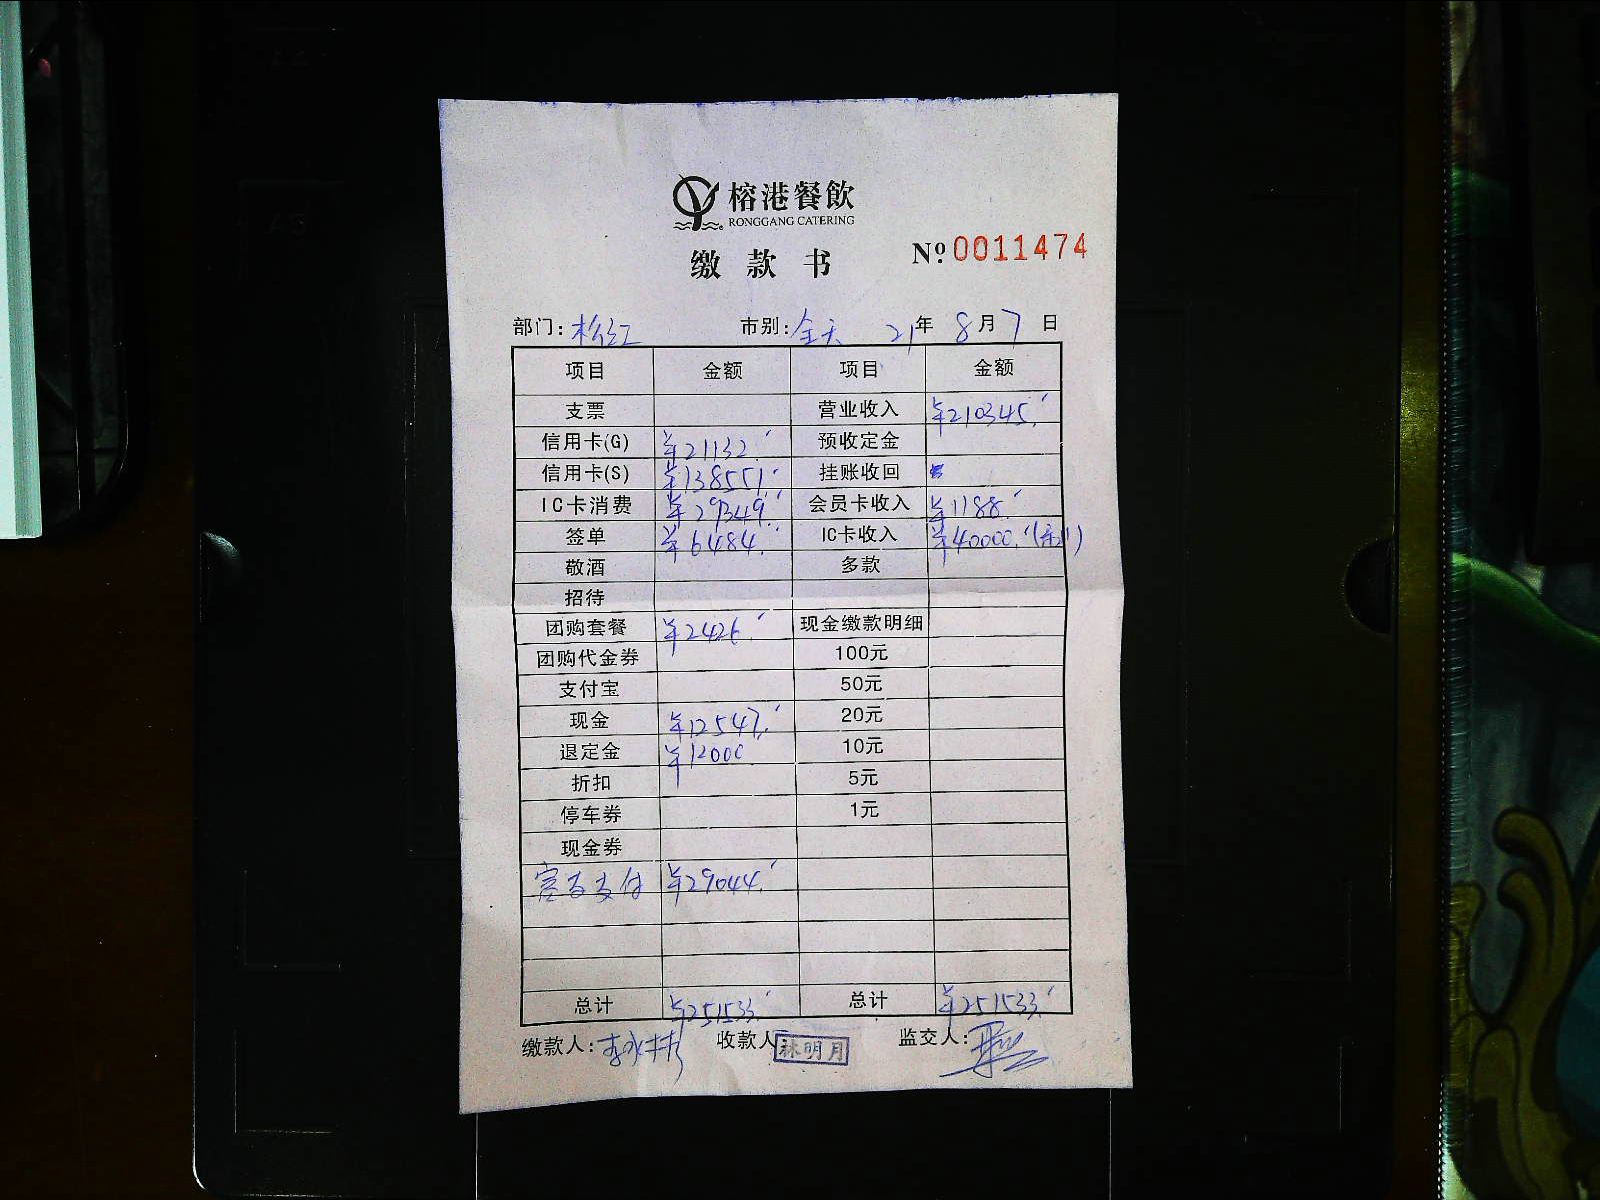 榕港餐飲
RONGGANG CATERING
缴款书
№ 0011474
部门: 松江 市别: 全天 21年 8月 7日
项目 金额 项目 金额
支票 营业收入 ¥210345.
信用卡(G) ¥21132. 预收定金
信用卡(S) ¥138551. 挂账收回
IC卡消费 ¥29349. 会员卡收入 ¥1188.
签单 ¥6484. IC卡收入 ¥40000.
敬酒 多款
招待
团购套餐 ¥2426. 现金缴款明细
团购代金券 100元
支付宝 50元
现金 ¥12547. 20元
退定金 ¥12000 10元
折扣 5元
停车券 1元
现金券
支付 ¥29044.
总计 ¥251533. 总计 ¥251533.
缴款人: 收款人 林明月 监交人: